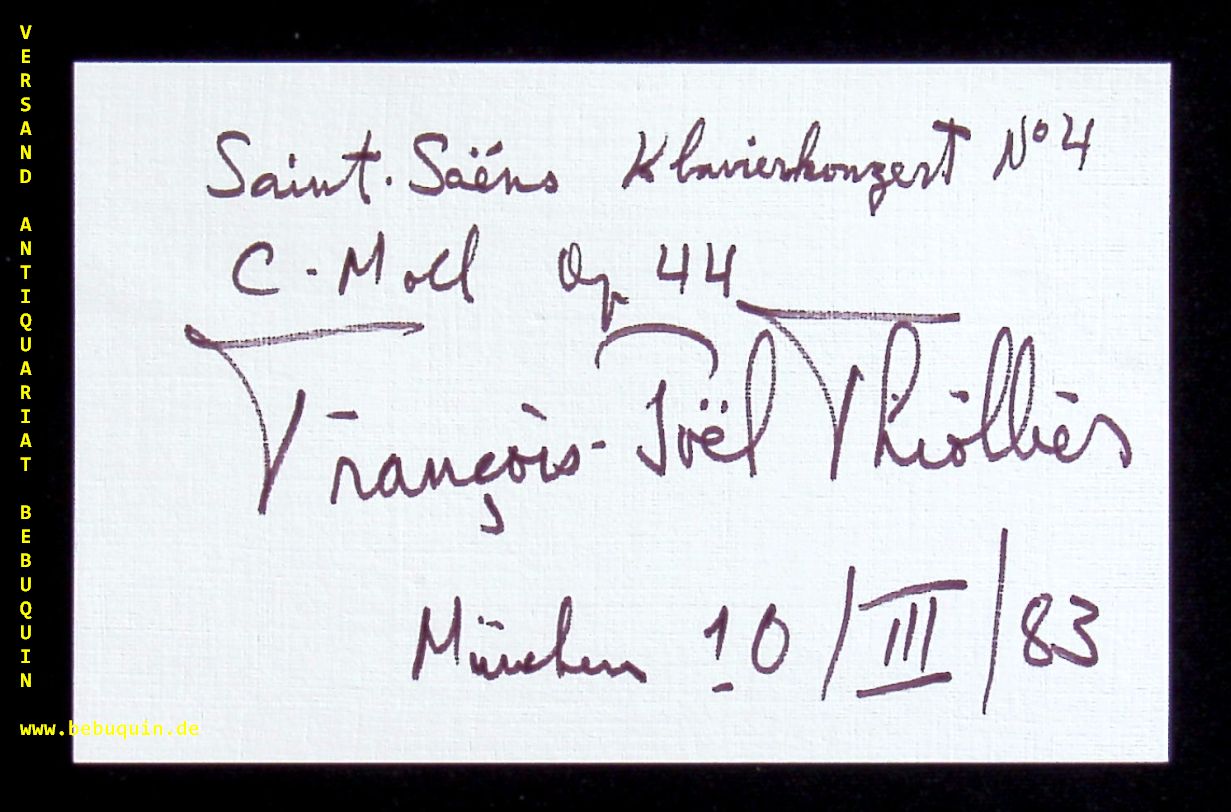 Saint-Saëns Klavierkonzert No 4
C-Moll Op 44
François-Joël Thiollier
München 10/III/83
VERSAND ANTIQUARIAT BEBUQUIN
www.bebuquin.de